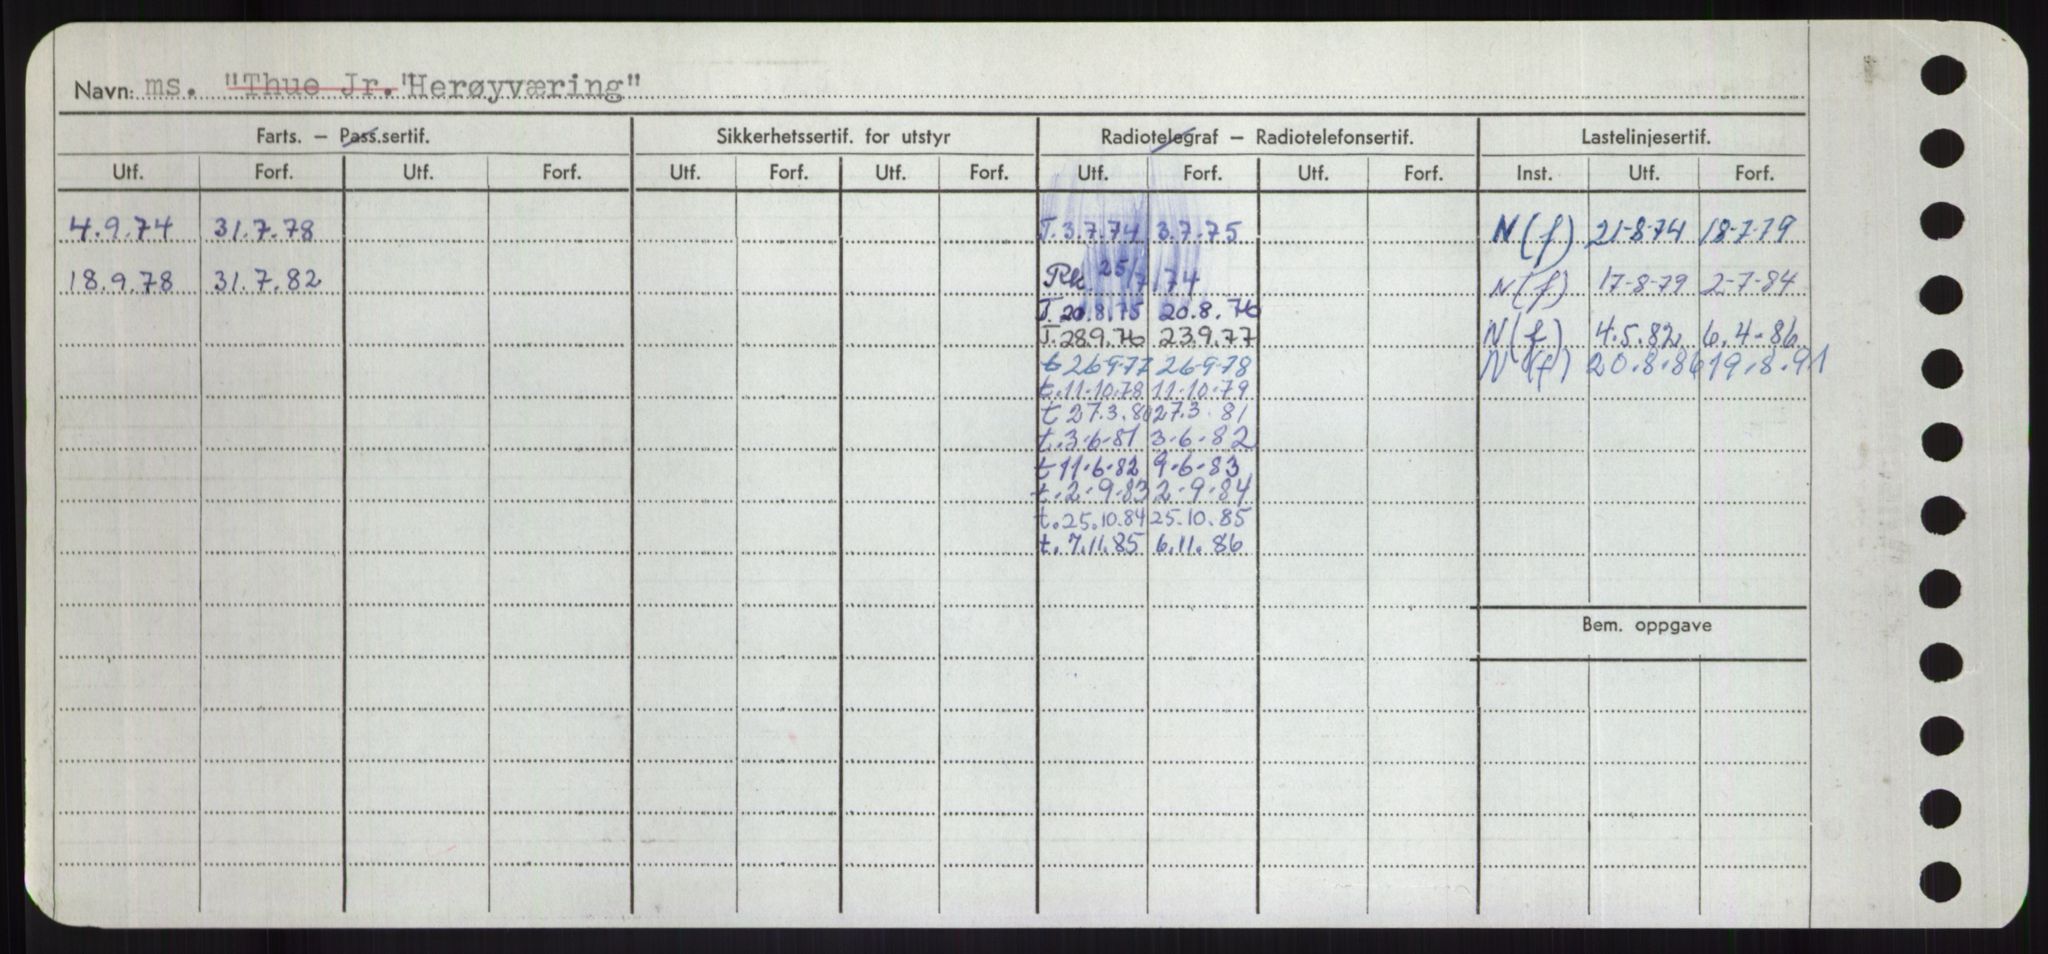 Navn: ms. "Thue Jr. "Herøyværing"
Farts. – Pass.sertif. Sikkerhetssertif. for utstyr Radiotelegraf – Radiotelefonsertif. Lastelinjesertif.
Utf. Forf. Utf. Forf. Utf. Forf. Utf. Forf. Utf. Forf. Utf. Forf. Inst. Utf. Forf.
4.9.74 31.7.78 T. 3.7.74 3.7.75 N(f) 21-8-74 18-7-79
18.9.78 31.7.82 Rk 25/7 74 N(f) 17-8-79 2-7-84
T. 20.8.75 20.8.76
T. 28.9.76 23.9.77 N(f) 4.5.82 6.4-86
t 26-9-77 26-9-78 N(f) 20.8.86 19.8.91
t. 11-10-78 11-10-79
t 27.3.80 27.3.81
t. 3-6-81 3-6-82
t 11-6-82 9-6-83
t. 2-9-83 2-9-84
t. 25.10.84 25.10.85
t. 7.11.85 6.11.86
Bem. oppgave